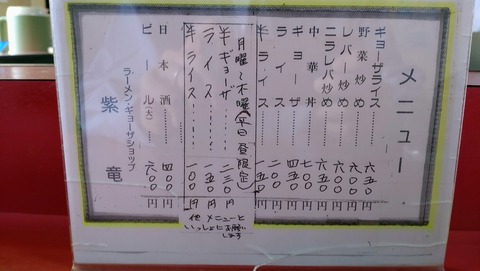 メニュー
ギョーザライス……六五〇円
野菜炒め……六〇〇円
レバー炒め……六〇〇円
ニラレバ炒め……六五〇円
中華丼……七〇〇円
ギョーザ……四五〇円
ライス……二〇〇円
半ライス……一五〇円
月曜〜木曜(平日昼限定)
半ギョーザ……二三〇円
ライス……一五〇円
半ライス……一〇〇円
他メニューと
いっしょにお願い
します
日本酒……四〇〇円
ビール(大)……六〇〇円
ラーメン・ギョーザショップ
紫竜